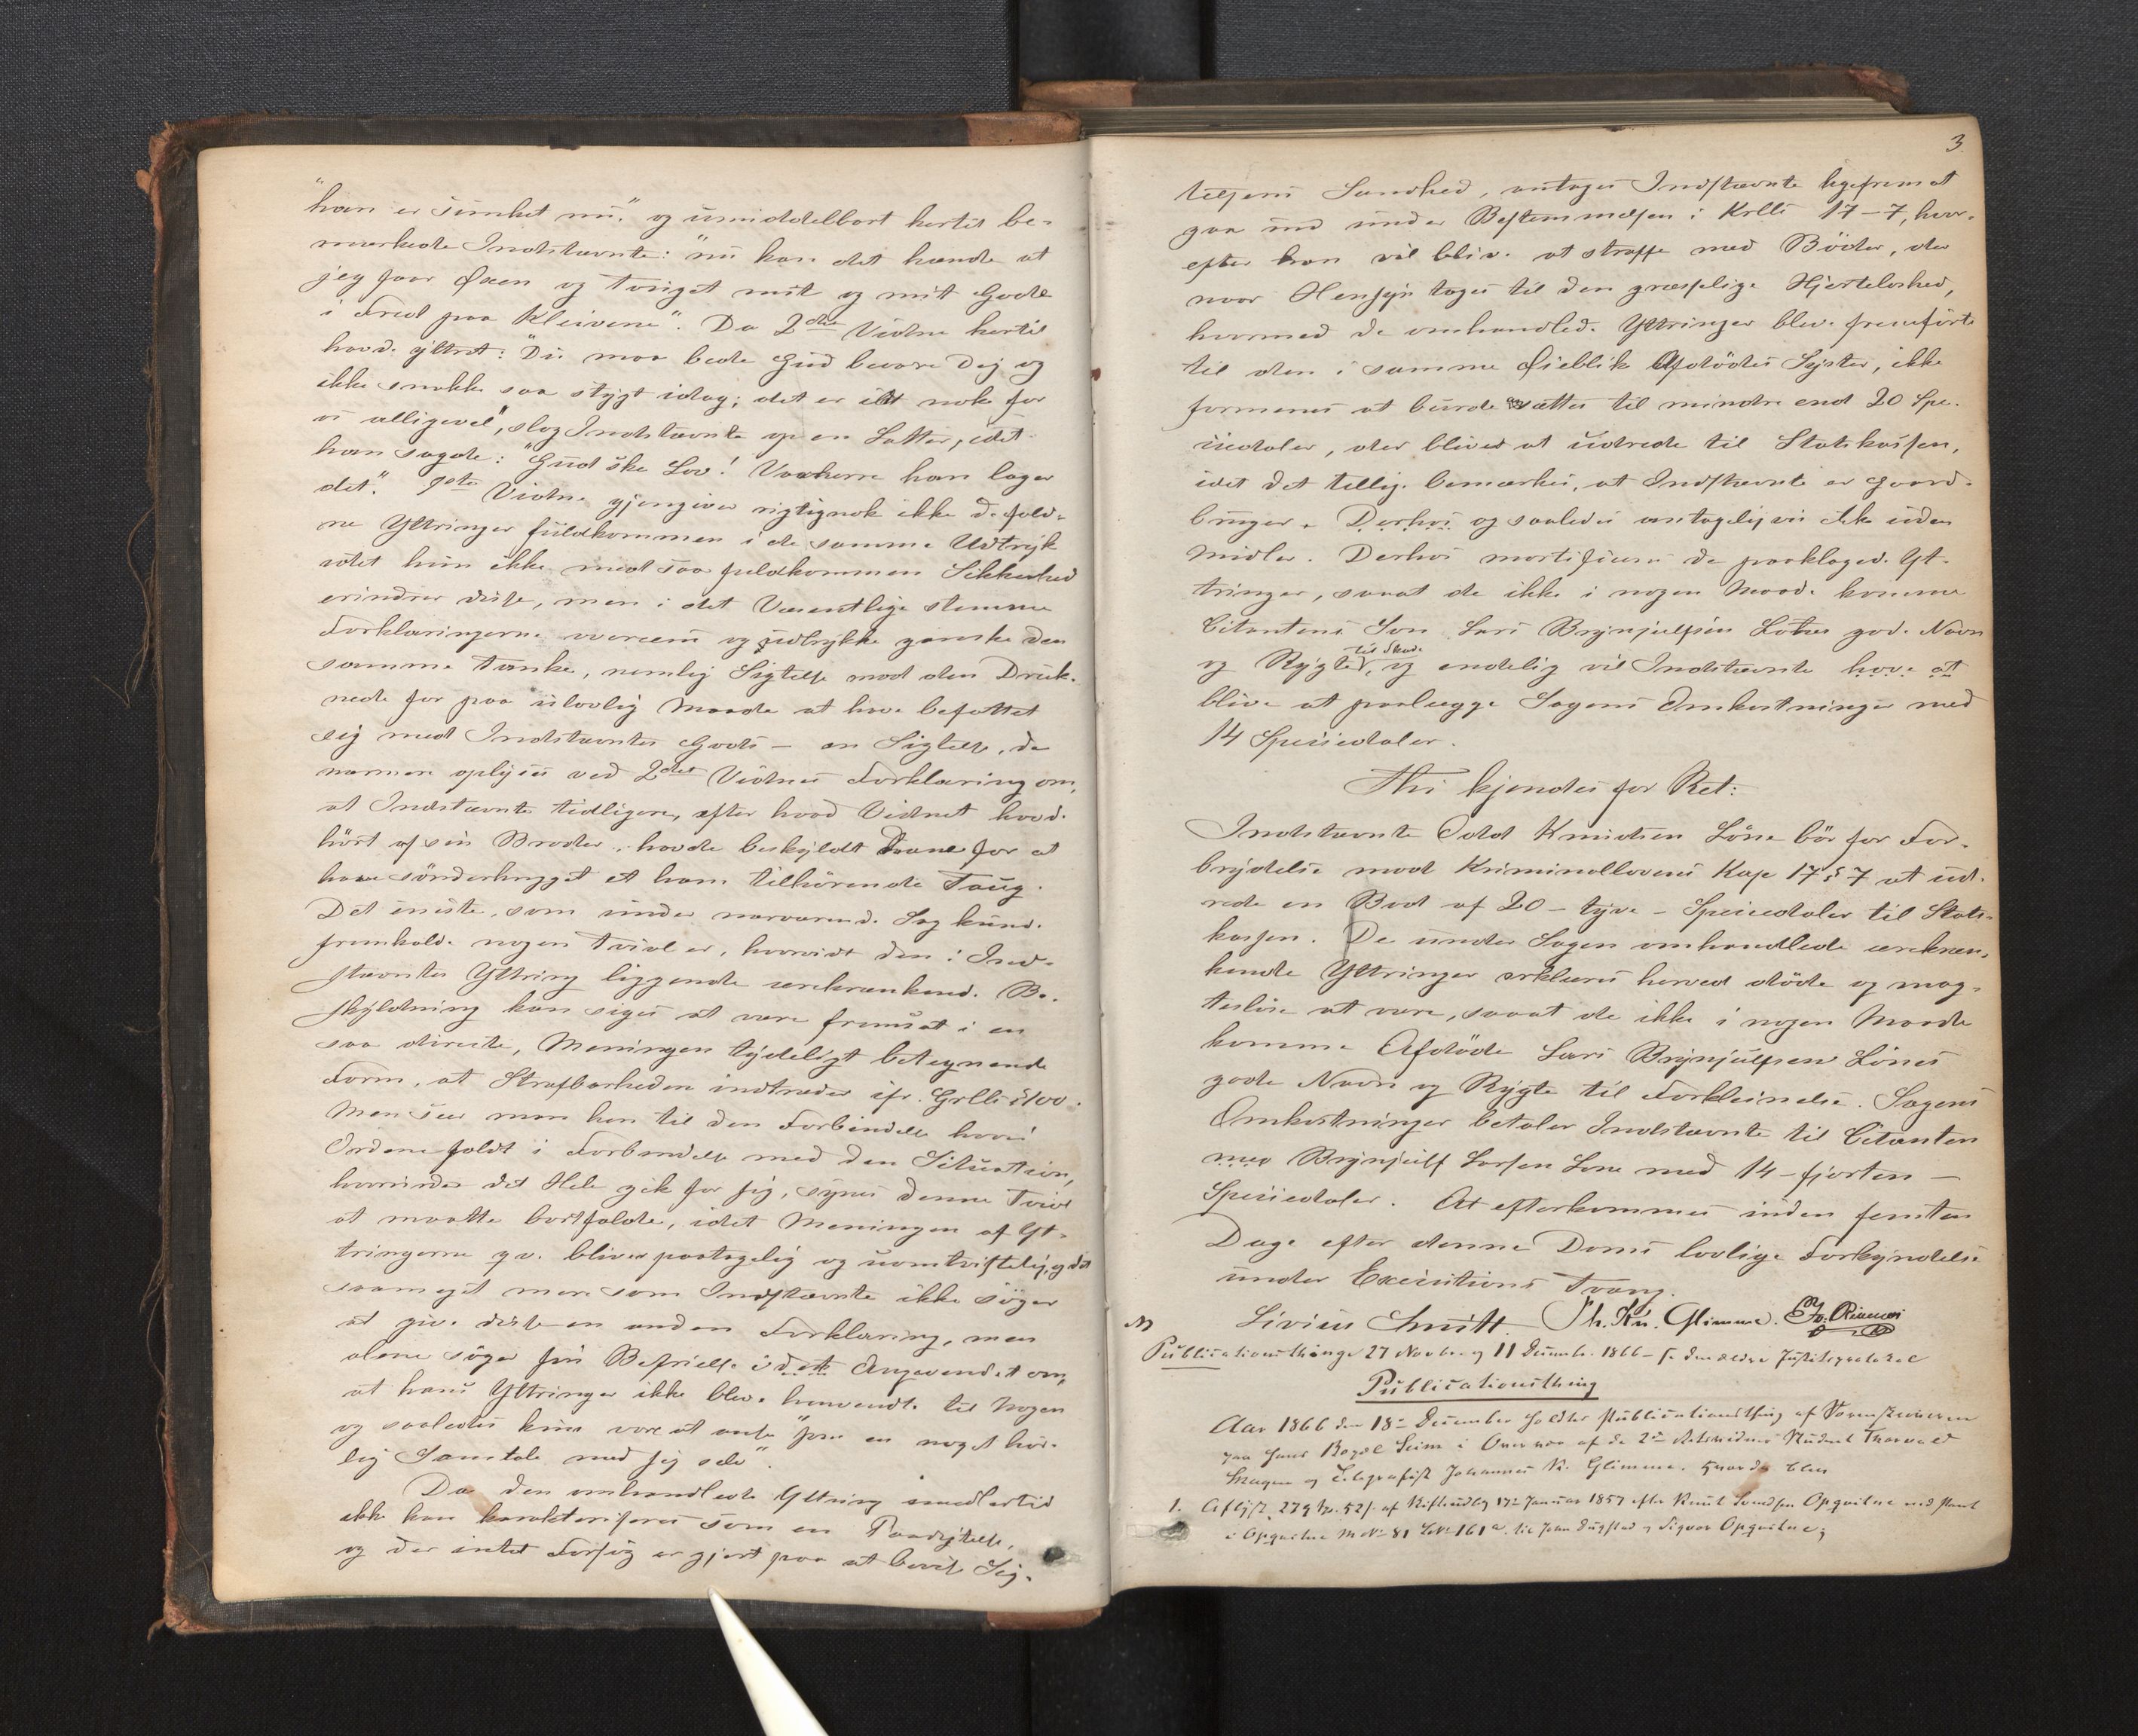 "han er sunket nu." og umiddelbart hertil be-
mærkede Indstævnte: "nu kan det hænde at
jeg faar Øxen og Touget mit og mit Gods
i Fred paa Kleivene". Da 2det Vidne hertil
havde yttret: "Du maa bede Gud bevare Dig og
ikke snakke saa stygt idag; det er ildt nok for
os alligevel", slog Indstævnte op en Latter, idet
han sagde: "Gud ske Lov! Vorherre han lager
det." 1ste Vidne gjengiver rigtignok ikke de fald-
ne Yttringer fuldkommen i de samme Udtryk
idet hun ikke med saa fuldkommen Sikkerhed
erindrer disse, men i det Væsentlige stemme
Forklaringerne overeens og udtrykke ganske den
samme Tanke, nemlig Sigtelse mod den Druk-
nede for paa ulovlig Maade at have befattet
sig med Indstævntes Gods – en Sigtelse, der
nærmere oplyses ved 2det Vidnes Forklaring om,
at Indstævnte tidligere, efter hvad Vidnet havde
hørt af sin Broder, havde beskyldt Denne for at
have sønderhugget et ham tilhørende Taug.
Det eneste, som under nærværende Sag kunde
fremkalde nogen Tvivl er, hvorvidt den i Ind-
stævntes Yttring liggende ærekrænkende Be-
skyldning kan siges at være fremsat i en
saa directe, Meningen tydeligt betegnende
Form, at Strafbarheden indtræder ifr. Grlls § 100.
Men seer man hen til den Forbindelse hvori
Ordene faldt i Forbindelse med den Situation,
hvorunder det Hele gik for sig, synes denne Tvivl
at maatte bortfalde, idet Meningen af Yt-
tringerne gv. bliver paatagelig og uomtvistelig, og det
saameget mere som Indstævnte ikke søger
at give disse en anden Forklaring, men
alene søger sin Befrielse i dette Angivendet om,
at hans Yttringer ikke bleve henvendte til Nogen
og saaledes kun vare at anse "som en noget hør-
lig Samtale med sig selv".
Da den omhandlede Yttring imidlertid
ikke kan karakteriseres som en Paadigtelse,
og der intet Forsøg er gjort paa at bevise Sig-
3
telsens Sandhed, antages Indstævnte ligefrem at
gaa ind under Bestemmelsen i Krlls 17-7, hvor-
efter han vil blive at straffe med Bøder, der
naar Hensyn tages til den græsselige Hjerteløshed,
hvormed de omhandlede Yttringer bleve fremførte
til den i samme Øieblik Afdødes Syster, ikke
formenes at burde sættes til mindre end 20 Spe-
ciedaler, der bliver at udrede til Statskassen,
idet det tillige bemærkes, at Indstævnte er Gaard-
bruger. Derhos og saaledes antageligviis ikke uden
Midler. Derhos mortificeres de paaklagede Yt-
tringer, saaat de ikke i nogen Maade komme
Citantens Søn Lars Brynjulfsen Lønes gode Navn
og Rygte til Skade, og endelig vil Indstævnte have at
blive at paalægge Sagens Omkostninger med
14 Speciedaler.
Thi kjendes for Ret:
Indstævnte Odd Knudsen Løne bør for For-
brydelse mod Kriminallovens Kap 17 § 7 at ud-
rede en Bod af 20 – tyve – Speciedaler til Stats-
kassen. De under Sagen omhandlede ærekræn-
kende Yttringer erklæres herved døde og mag-
tesløse at være, saaat de ikke i nogen Maade
komme Afdøde Lars Brynjulfsen Lønes
gode Navn og Rygte til Forkleinelse. Sagens
Omkostninger betaler Indstævnte til Citanten
med Brynjulf Larsen Løne med 14 – fjorten –
Speciedaler. At efterkommes inden femten
Dage efter denne Doms lovlige Forkyndelse
under Executions Tvang.
Livius Smitt. Th. Kn. Glimme.
Publicationsthinge 27 Novbr. og 11 December 1866 – se den ældre Justitsprotocol
Publicationsthing
Aar 1866 den 18de December holdtes Publicationsthing af Sorenskriveren
paa hans Bopæl Seim i Overvær af de 2de Retsvidner Student Thorvald
og Telegrafist Johannes K. Glimme, hvorda blev
1. Aflyst 279 Sp. 52 s. af Skifteudlæg 17de Januar 1857 efter Knut Svendsen Opqvitne med Pant
i Opqvitne M.No. 81 L.No. 161a. til John Dugstad og Sigvor Opqvitne;